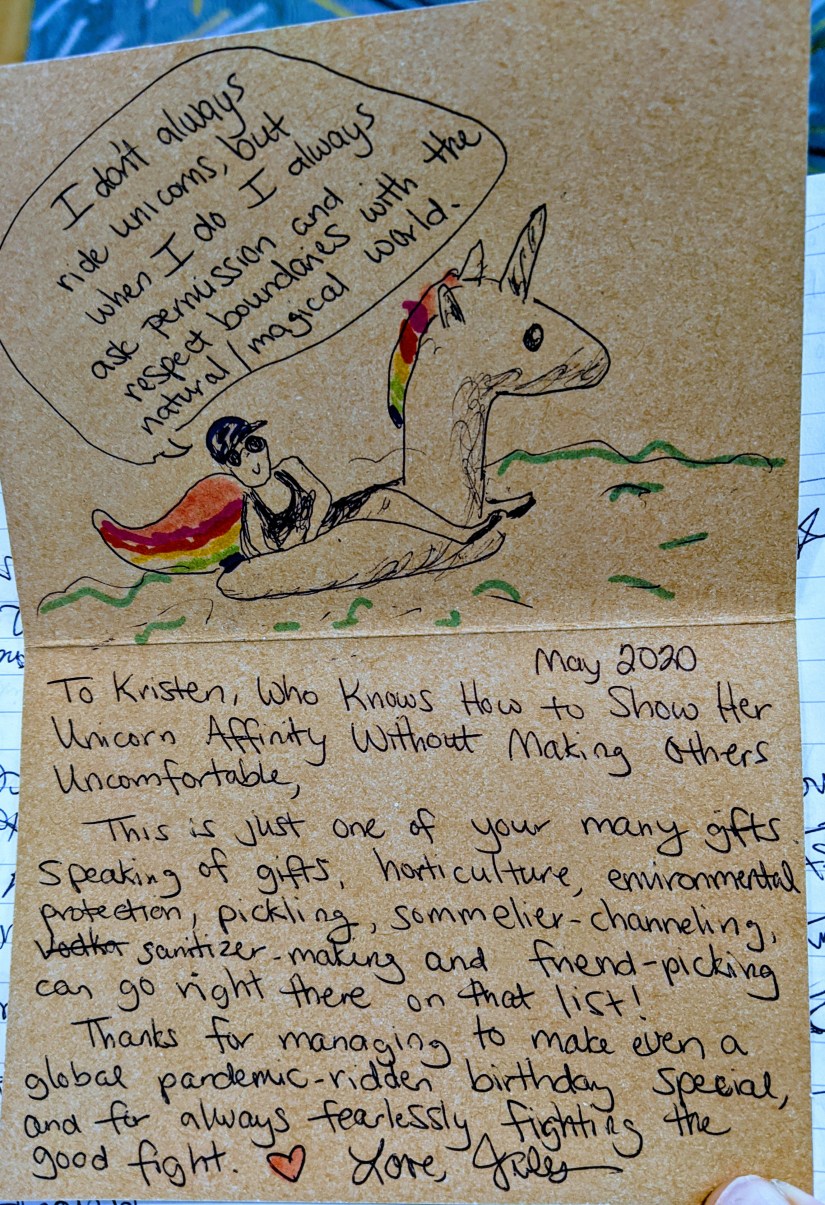 I don't always
ride unicorns, but
when I do I always
ask permission and
respect boundaries with the
natural/magical world.
May 2020
To Kristen, Who Knows How to Show Her
Unicorn Affinity Without Making Others
Uncomfortable,
This is just one of your many gifts.
Speaking of gifts, horticulture, environmental
protection, pickling, sommelier-channeling,
vodka sanitizer-making and friend-picking
can go right there on that list!
Thanks for managing to make even a
global pandemic-ridden birthday special,
and for always fearlessly fighting the
good fight. Love,